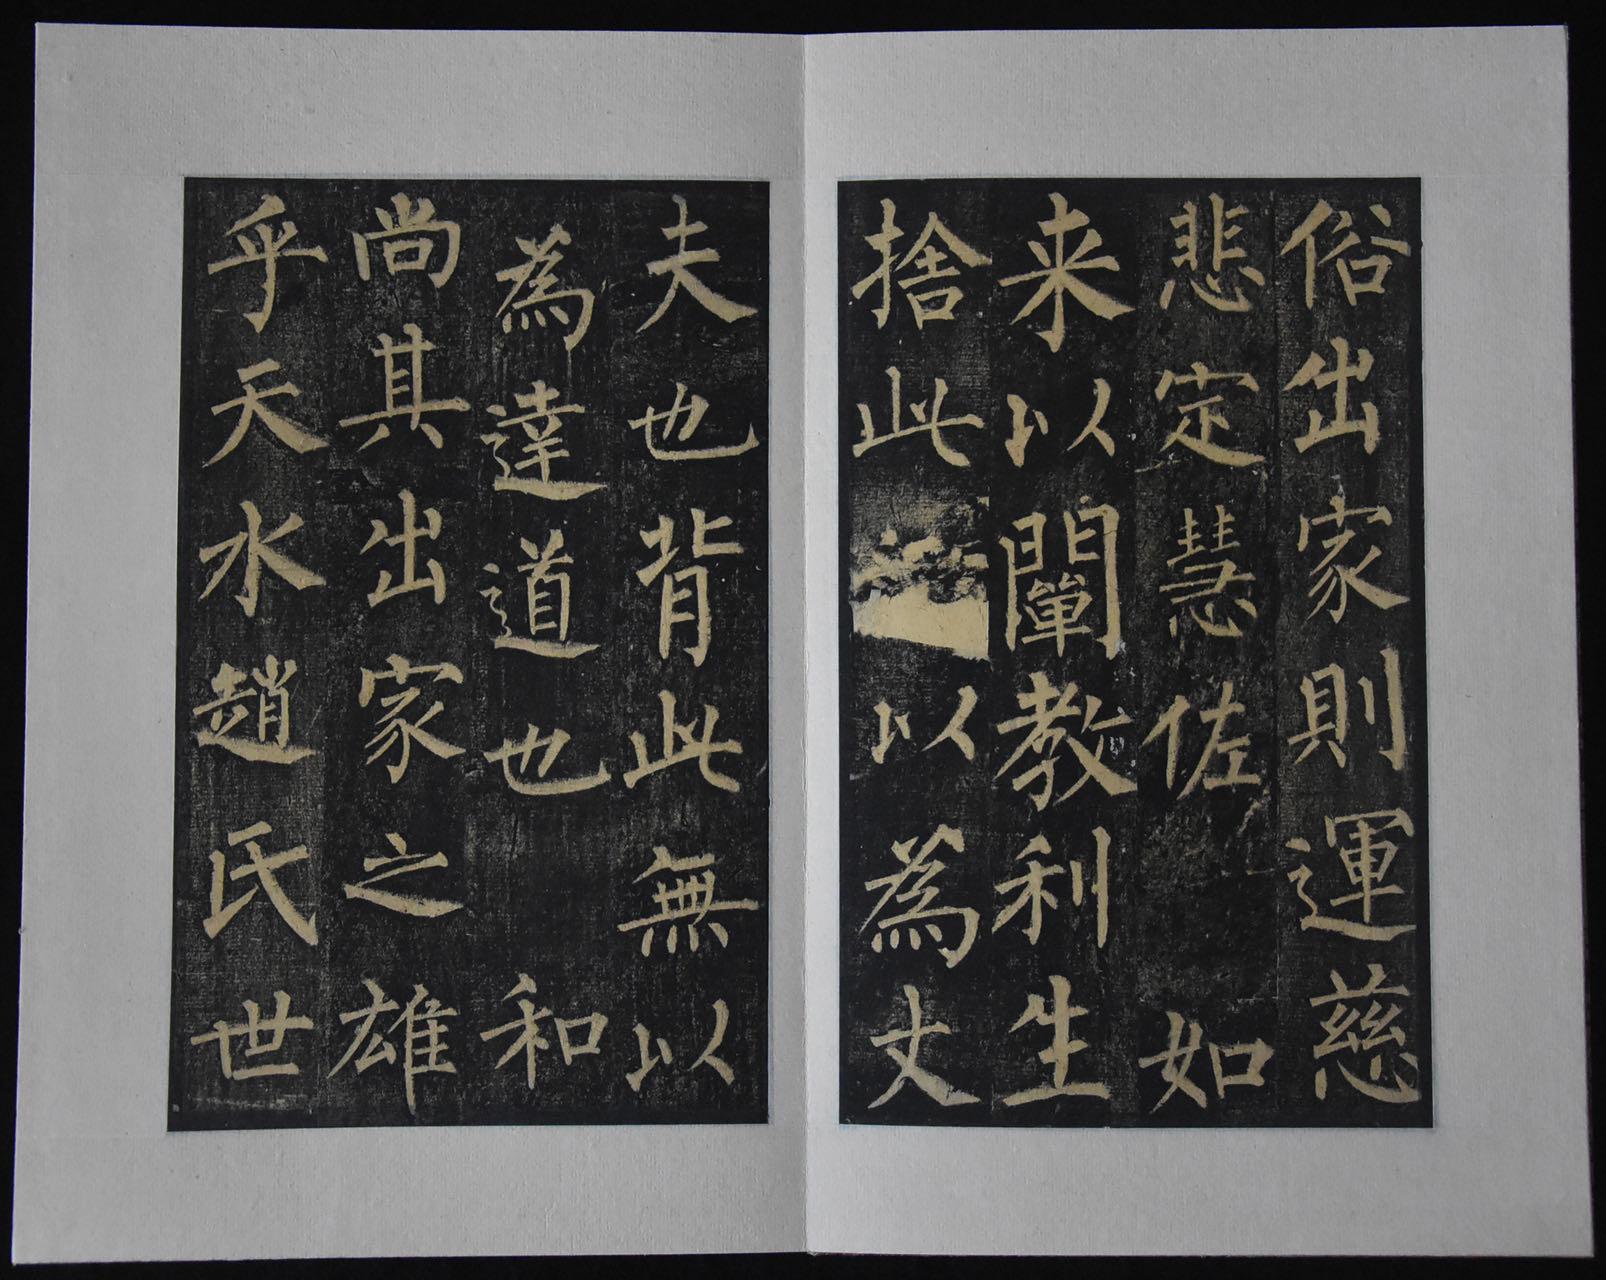 俗出家則運慈
悲定慧佐如
来以闡教利生
捨此以為丈
夫也背此無以
為達道也和
尚其出家之雄
乎天水趙氏世